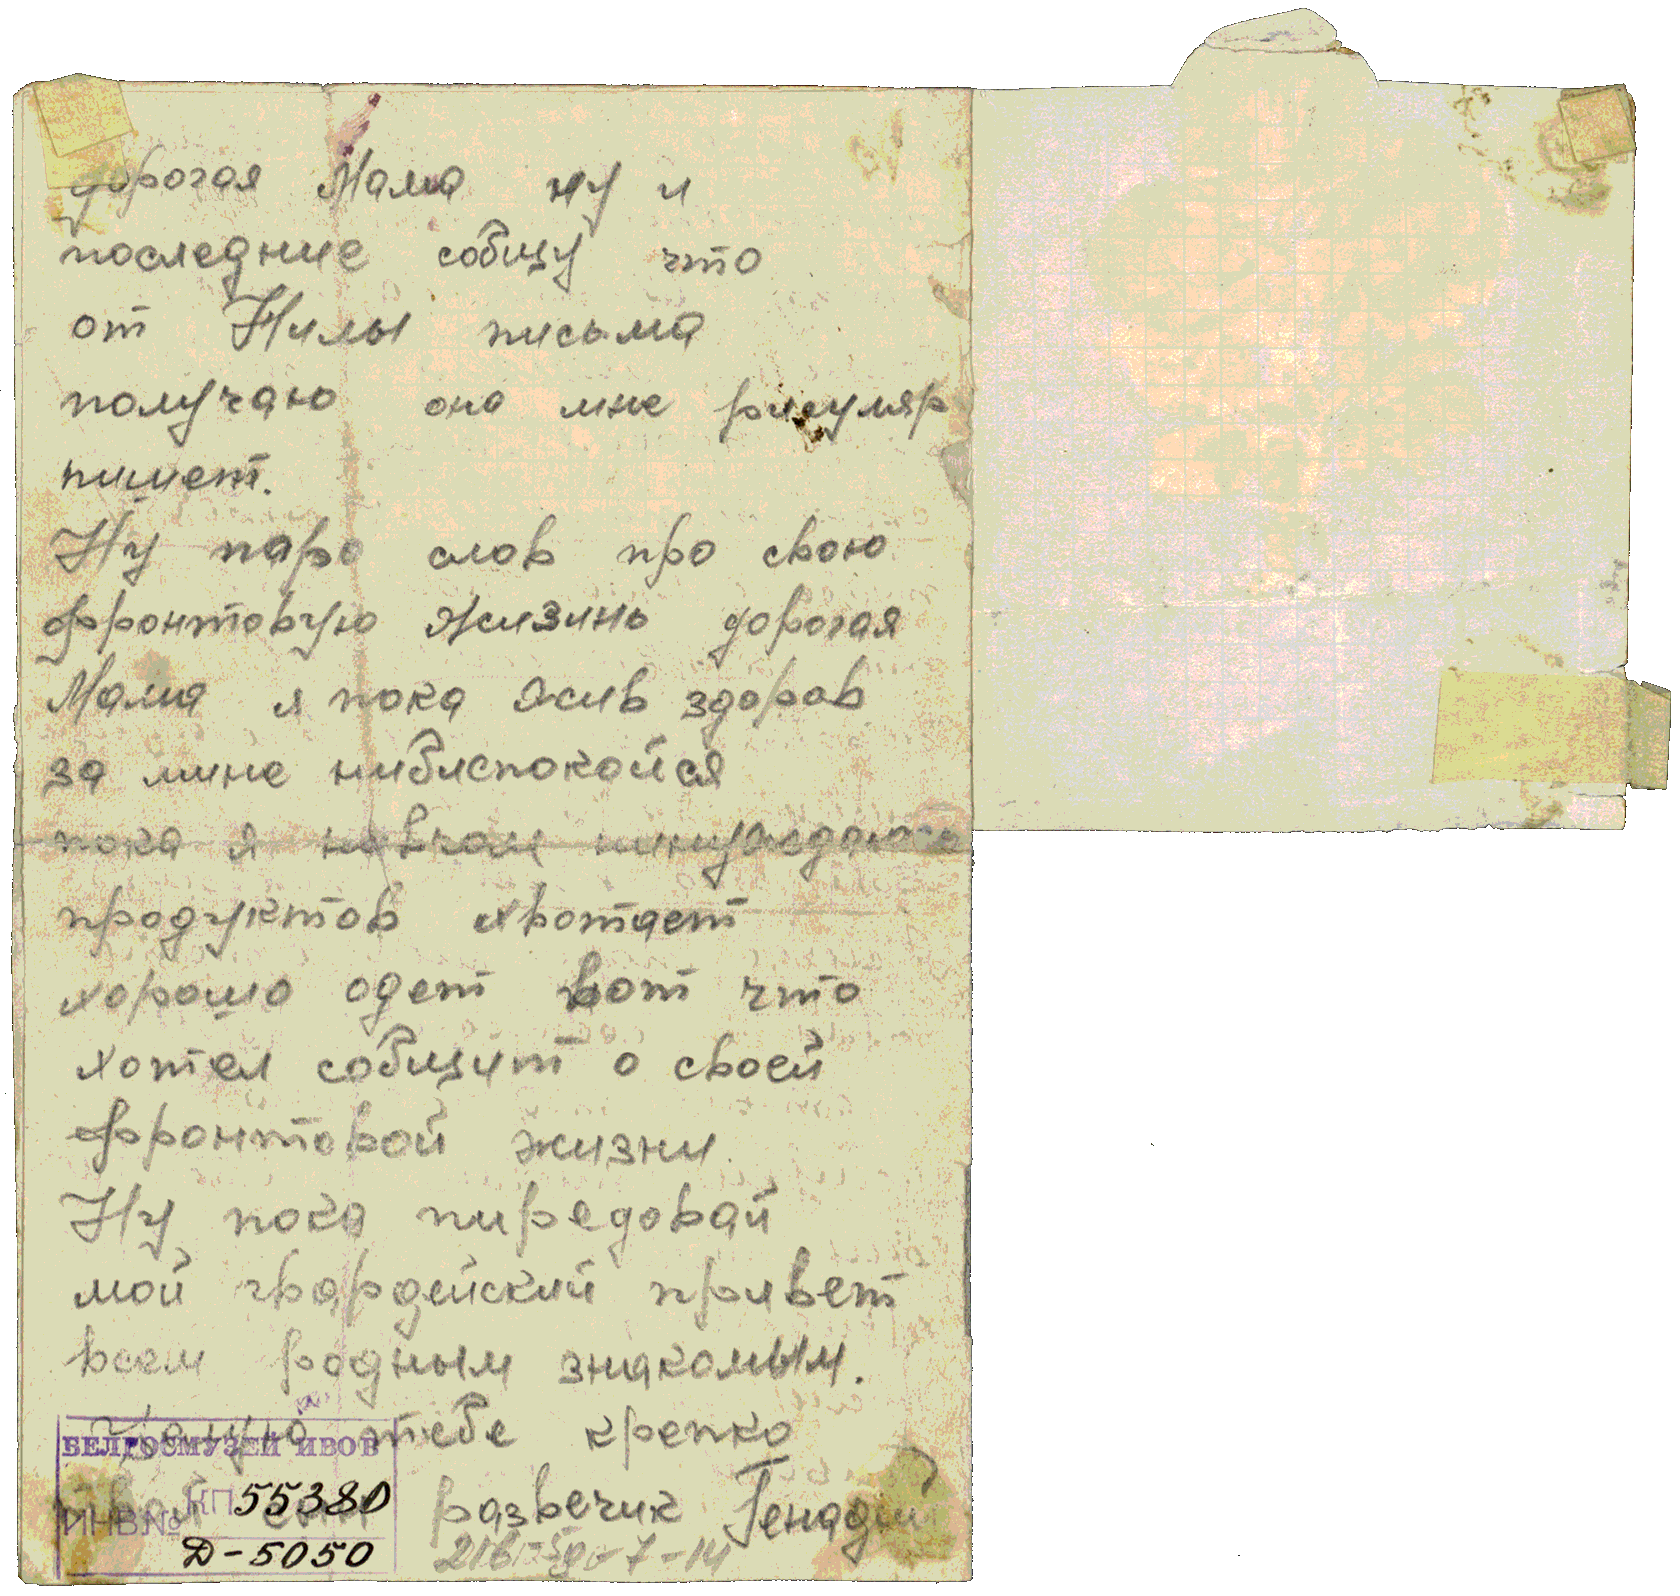 дорогая Мама ну и
последние собщу что
от Нилы письма
получаю она мне
пишет.
Ну паро слов про свою
фронтовую жизинь дорогая
Мама я пока жив здоров
за мине нибиспокойся
пока я нивчом нинуждаюсь
продуктов хвотает
хорошо одет вот что
хотел собщит о своей
фронтовой жизни
Ну пока пиредовай
мой гвардейский привет
всем родным знакомым.
тебе крепко
развечик Генадий
БЕЛГОСМУЗЕЙ ИВОВ
КП 55380
ИНВ.№
Д-5050